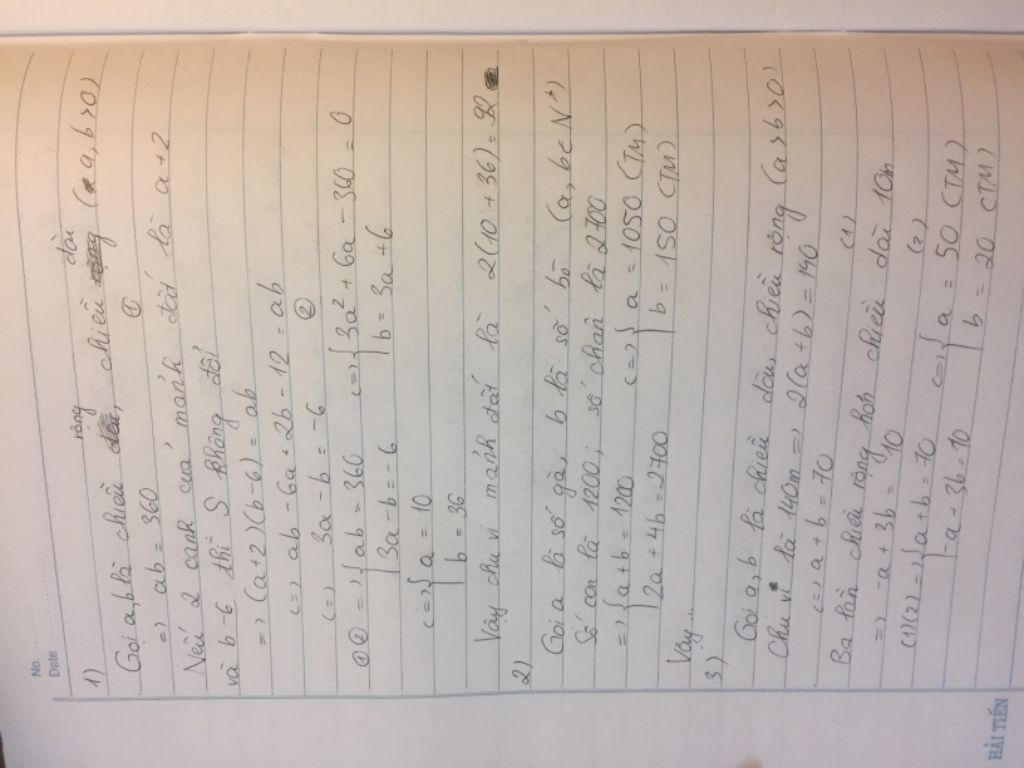 No. ........
Date ........
1)
Gọi a, b là chiều rộng, chiều dài (a, b > 0)
=> ab = 360 ①
Nếu 2 cạnh của mảnh đất là a + 2
và b - 6 thì S không đổi
=> (a + 2)(b - 6) = ab
<=> ab - 6a + 2b - 12 = ab
<=> 3a - b = -6 ②
①② => { ab = 360 <=> { 3a² + 6a - 360 = 0
3a - b = -6 b = 3a + 6
<=> { a = 10
b = 36
Vậy chu vi mảnh đất là 2(10 + 36) = 92
2)
Gọi a là số gà, b là số bò (a, b ∈ N*)
Số con là 1200; số chân là 2700
=> { a + b = 1200 <=> { a = 1050 (TM)
2a + 4b = 2700 b = 150 (TM)
Vậy...
3)
Gọi a, b là chiều dài, chiều rộng (a > b > 0)
Chu vi là 140m => 2(a + b) = 140
<=> a + b = 70 (1)
Ba lần chiều rộng hơn chiều dài 10m
=> -a + 3b = 10 (2)
(1)(2) => { a + b = 70 <=> { a = 50 (TM)
-a + 3b = 10 b = 20 (TM)
HẢI TIẾN